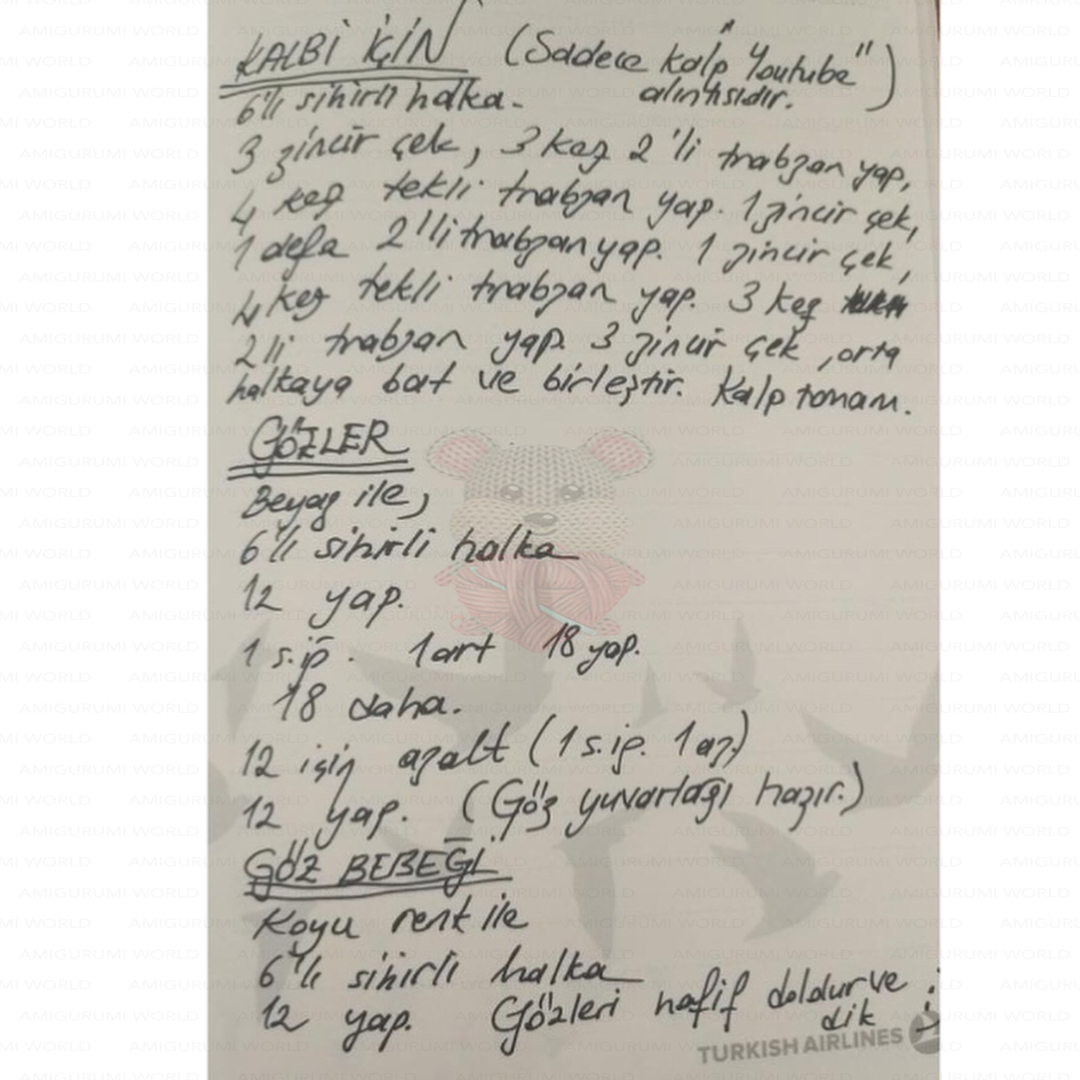 KALBİ İÇİN (Sadece kalp "Youtube"
alıntısıdır.)
6'lı sihirli halka.
3 zincir çek, 3 kez 2'li trabzan yap,
4 kez tekli trabzan yap. 1 zincir çek,
1 defa 2'li trabzan yap. 1 zincir çek,
4 kez tekli trabzan yap. 3 kez
2'li trabzan yap. 3 zincir çek, orta
halkaya bat ve birleştir. Kalp tamam.
GÖZLER
Beyaz ile,
6'lı sihirli halka
12 yap.
1 s.iğ. 1 art 18 yap.
18 daha.
12 için azalt (1 s.iğ. 1 az.)
12 yap. (Göz yuvarlağı hazır.)
GÖZ BEBEĞİ
Koyu renk ile
6'lı sihirli halka
12 yap. Gözleri hafif doldur ve
dik
TURKISH AIRLINES
AMIGURUMI WORLD